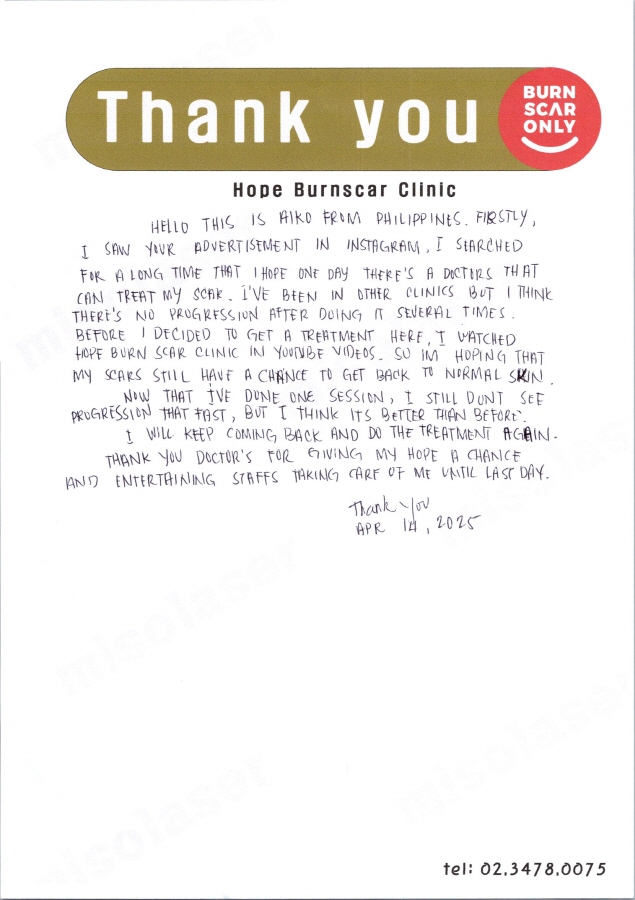 Thank you
BURN
SCAR
ONLY
Hope Burnscar Clinic
HELLO THIS IS AIKO FROM PHILIPPINES. FIRSTLY,
I SAW YOUR ADVERTISEMENT IN INSTAGRAM, I SEARCHED
FOR A LONG TIME THAT I HOPE ONE DAY THERE'S A DOCTORS THAT
CAN TREAT MY SCAR. I'VE BEEN IN OTHER CLINICS BUT I THINK
THERE'S NO PROGRESSION AFTER DOING IT SEVERAL TIMES.
BEFORE I DECIDED TO GET A TREATMENT HERE, I WATCHED
HOPE BURN SCAR CLINIC IN YOUTUBE VIDEOS. SO IM HOPING THAT
MY SCARS STILL HAVE A CHANCE TO GET BACK TO NORMAL SKIN.
NOW THAT I'VE DONE ONE SESSION, I STILL DONT SEE
PROGRESSION THAT FAST, BUT I THINK ITS BETTER THAN BEFORE.
I WILL KEEP COMING BACK AND DO THE TREATMENT AGAIN.
THANK YOU DOCTOR'S FOR GIVING MY HOPE A CHANCE
AND ENTERTAINING STAFFS TAKING CARE OF ME UNTIL LAST DAY.
Thank You
APR 14, 2025
misolaser
misolaser
misolaser
misolaser
misolaser
misolaser
tel: 02.3478.0075